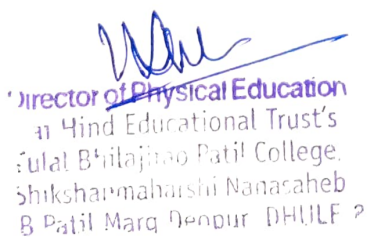 Director of Physical Education
Hind Educational Trust's
Patil College,
Shikshanmaharshi Nanasaheb
B Patil Marg Deopur DHULE